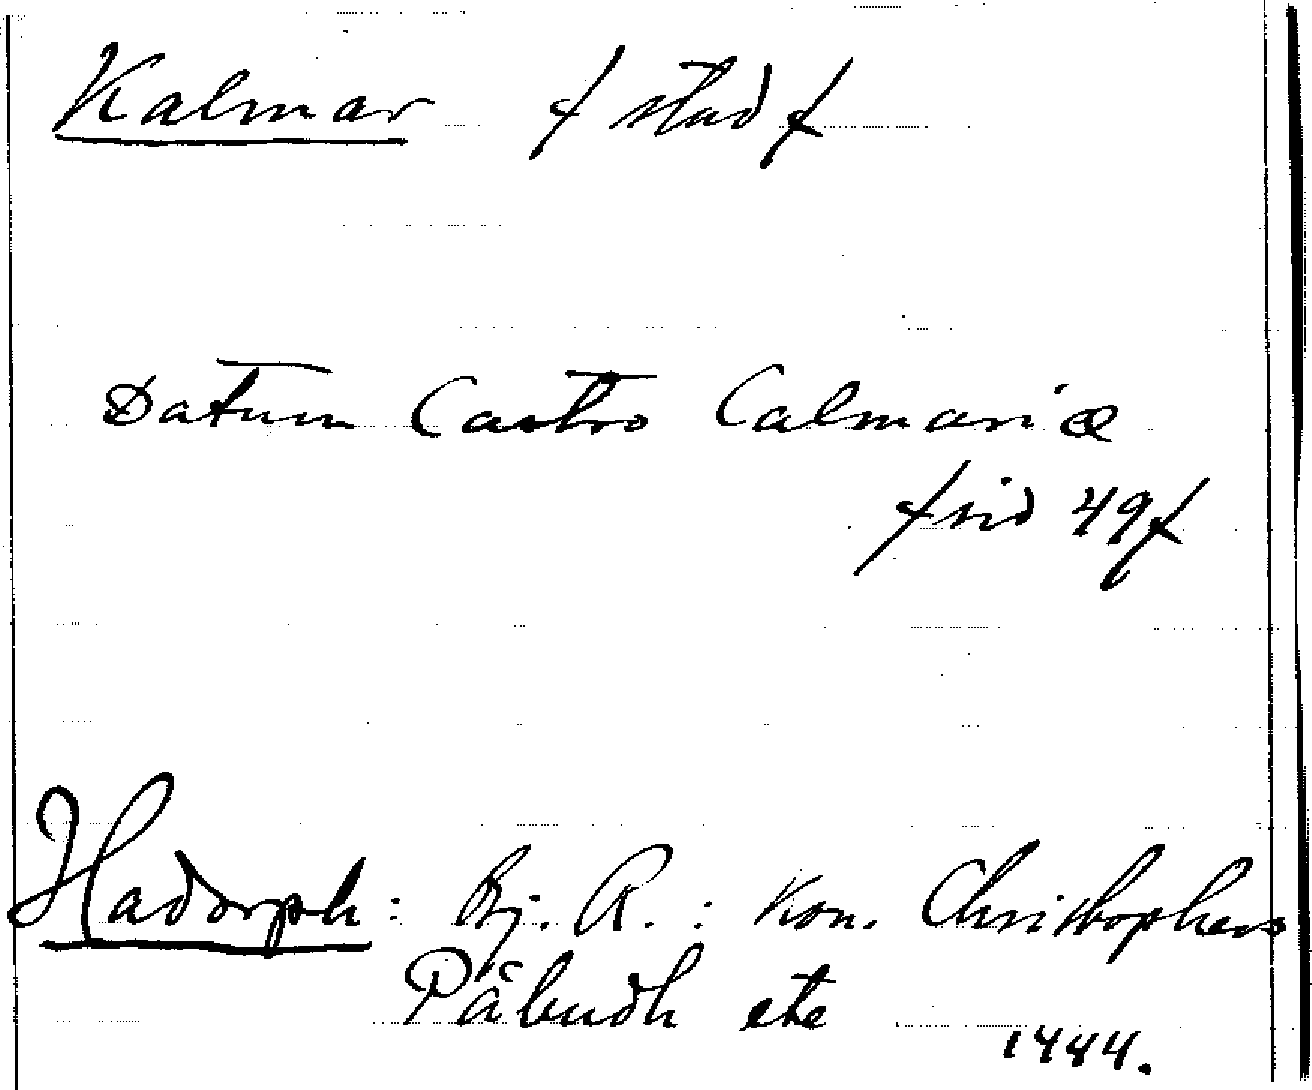 Kalmar / stad /
Datum Castro Calmariæ
/ sid 49 /
Hadorph: Bj. R. : Kon. Christophers
Påbudh etc
1444.